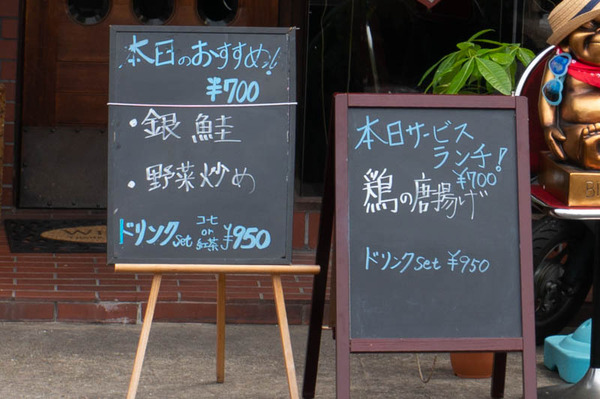 本日のおすすめ!!
¥700
・銀鮭
・野菜炒め
ドリンクset コーヒ or 紅茶 ¥950
本日サービス
ランチ!
¥700
鶏の唐揚げ
ドリンクset ¥950